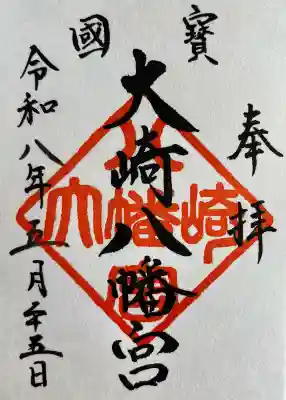 國寶
奉拝
大崎八幡宮
令和八年五月二十五日
大崎八幡宮